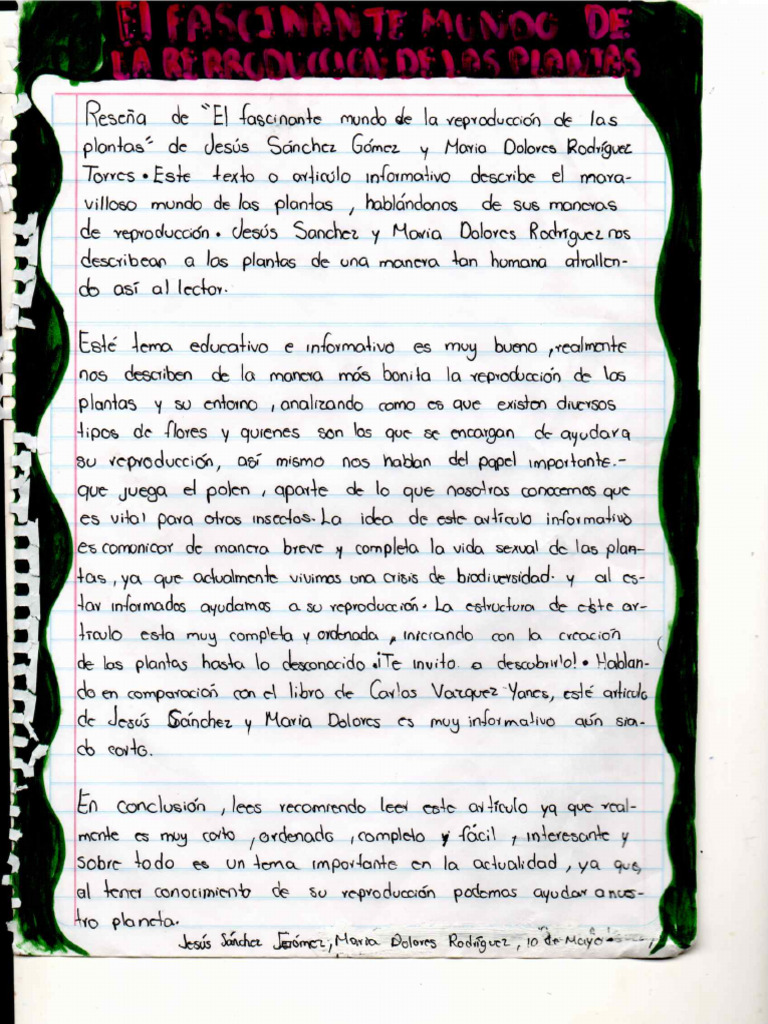 El FASCINANTE MUNDO DE
LA REPRODUCCION DE LAS PLANTAS
Reseña de "El fascinante mundo de la reproducción de las
plantas" de Jesús Sánchez Gómez y Maria Dolores Rodríguez
Torres. Este texto o articulo informativo describe el mara-
villoso mundo de las plantas, hablándonos de sus maneras
de reproducción. Jesús Sanchez y Maria Dolores Rodríguez nos
describean a las plantas de una manera tan humana atrallen-
do así al lector.
Esté tema educativo e informativo es muy bueno, realmente
nos describen de la manera más bonita la reproducción de las
plantas y su entorno, analizando como es que existen diversos
tipos de flores y quienes son los que se encargan de ayudara
su reproducción, así mismo nos hablan del papel importante.-
que juega el polen, aparte de lo que nosotros conocemos que
es vital para otros insectos. La idea de este artículo informativo
es comunicar de manera breve y completa la vida sexual de las plan-
tas, ya que actualmente vivimos una crisis de biodiversidad. y al es-
tar informados ayudamos a su reproducción. La estructura de este ar-
trculo esta muy completa y ordenada, iniciando con la creación
de las plantas hasta lo desconocido ¡Te invito a descubrirlo!. Hablan-
do en comparación con el libro de Carlos Vazquez Yanes, esté articulo
de Jesús Sánchez y Maria Dolores es muy informativo aún sien-
do corto.
En conclusión, lees recomrendo leer este artículo ya que real-
mente es muy corto, ordenado, completo y fácil, interesante y
sobre todo es un tema importante en la actualidad, ya que,
al tener conocimiento de su reproducción podemos ayudar a nues-
tro planeta.
Jesús Sánchez Jerómez, Maria Dolores Rodríguez, 10 de Mayo